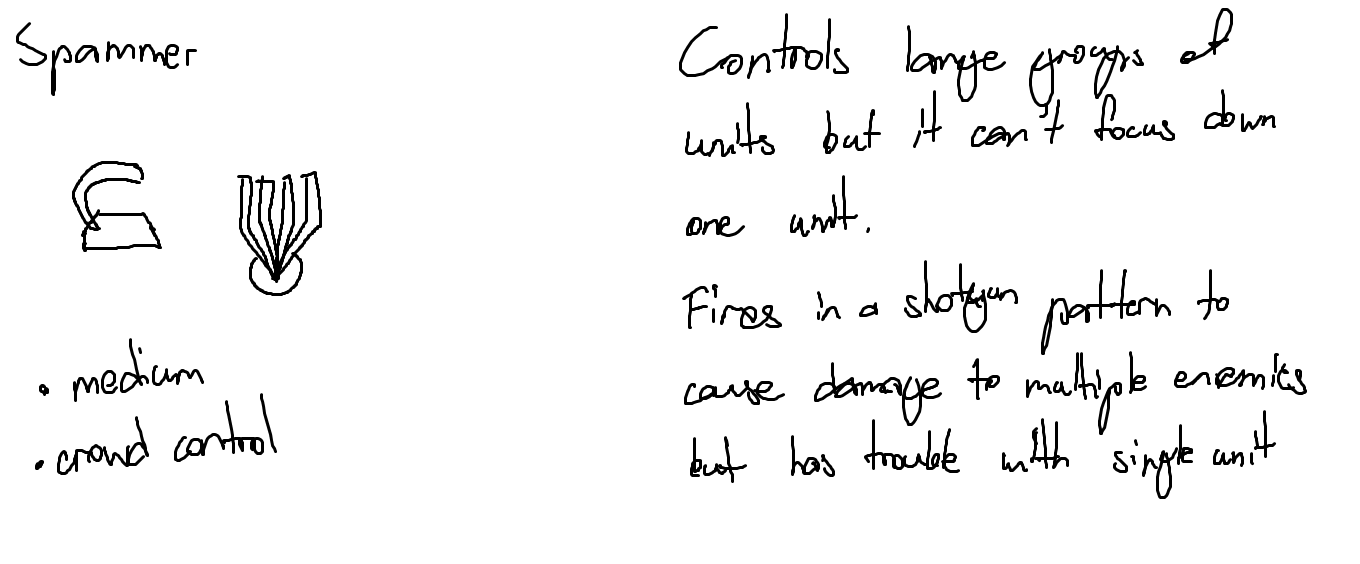 Spammer
• medium
• crowd control
Controls large groups of
units but it can't focus down
one unit.
Fires in a shotgun pattern to
cause damage to multiple enemies
but has trouble with single unit